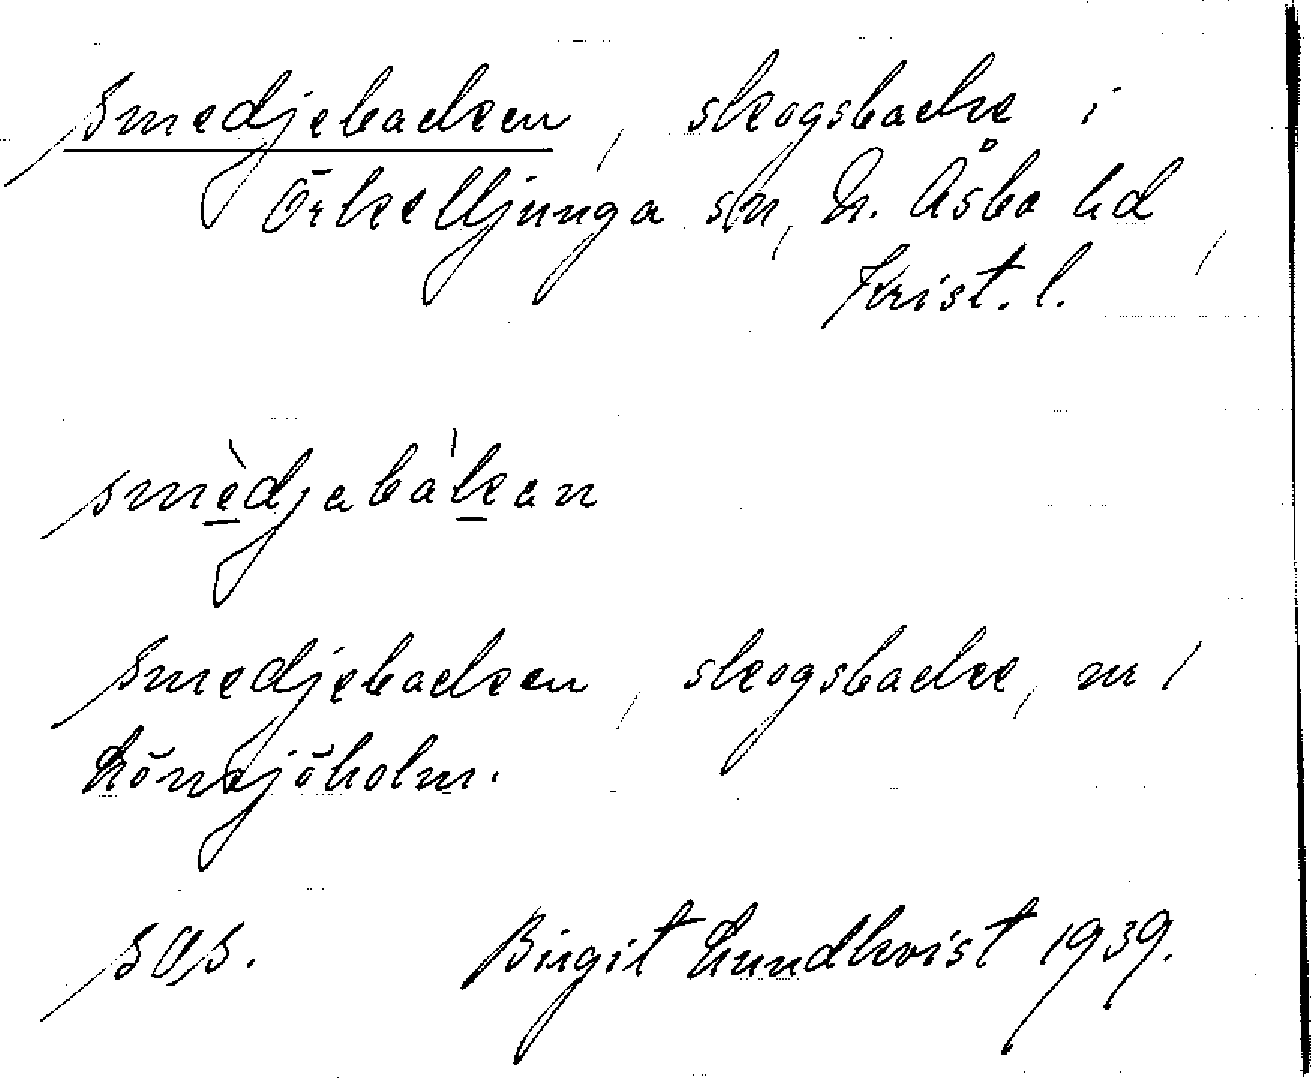 Smedjebacken, skogsbacke i
Örkelljunga sn, N. Åsbo hd,
Krist. l.
smèdjabàkan
Smedjebacken, skogsbacke, n
Lönsjöholm.
SOS. Birgit Lundkvist 1939.